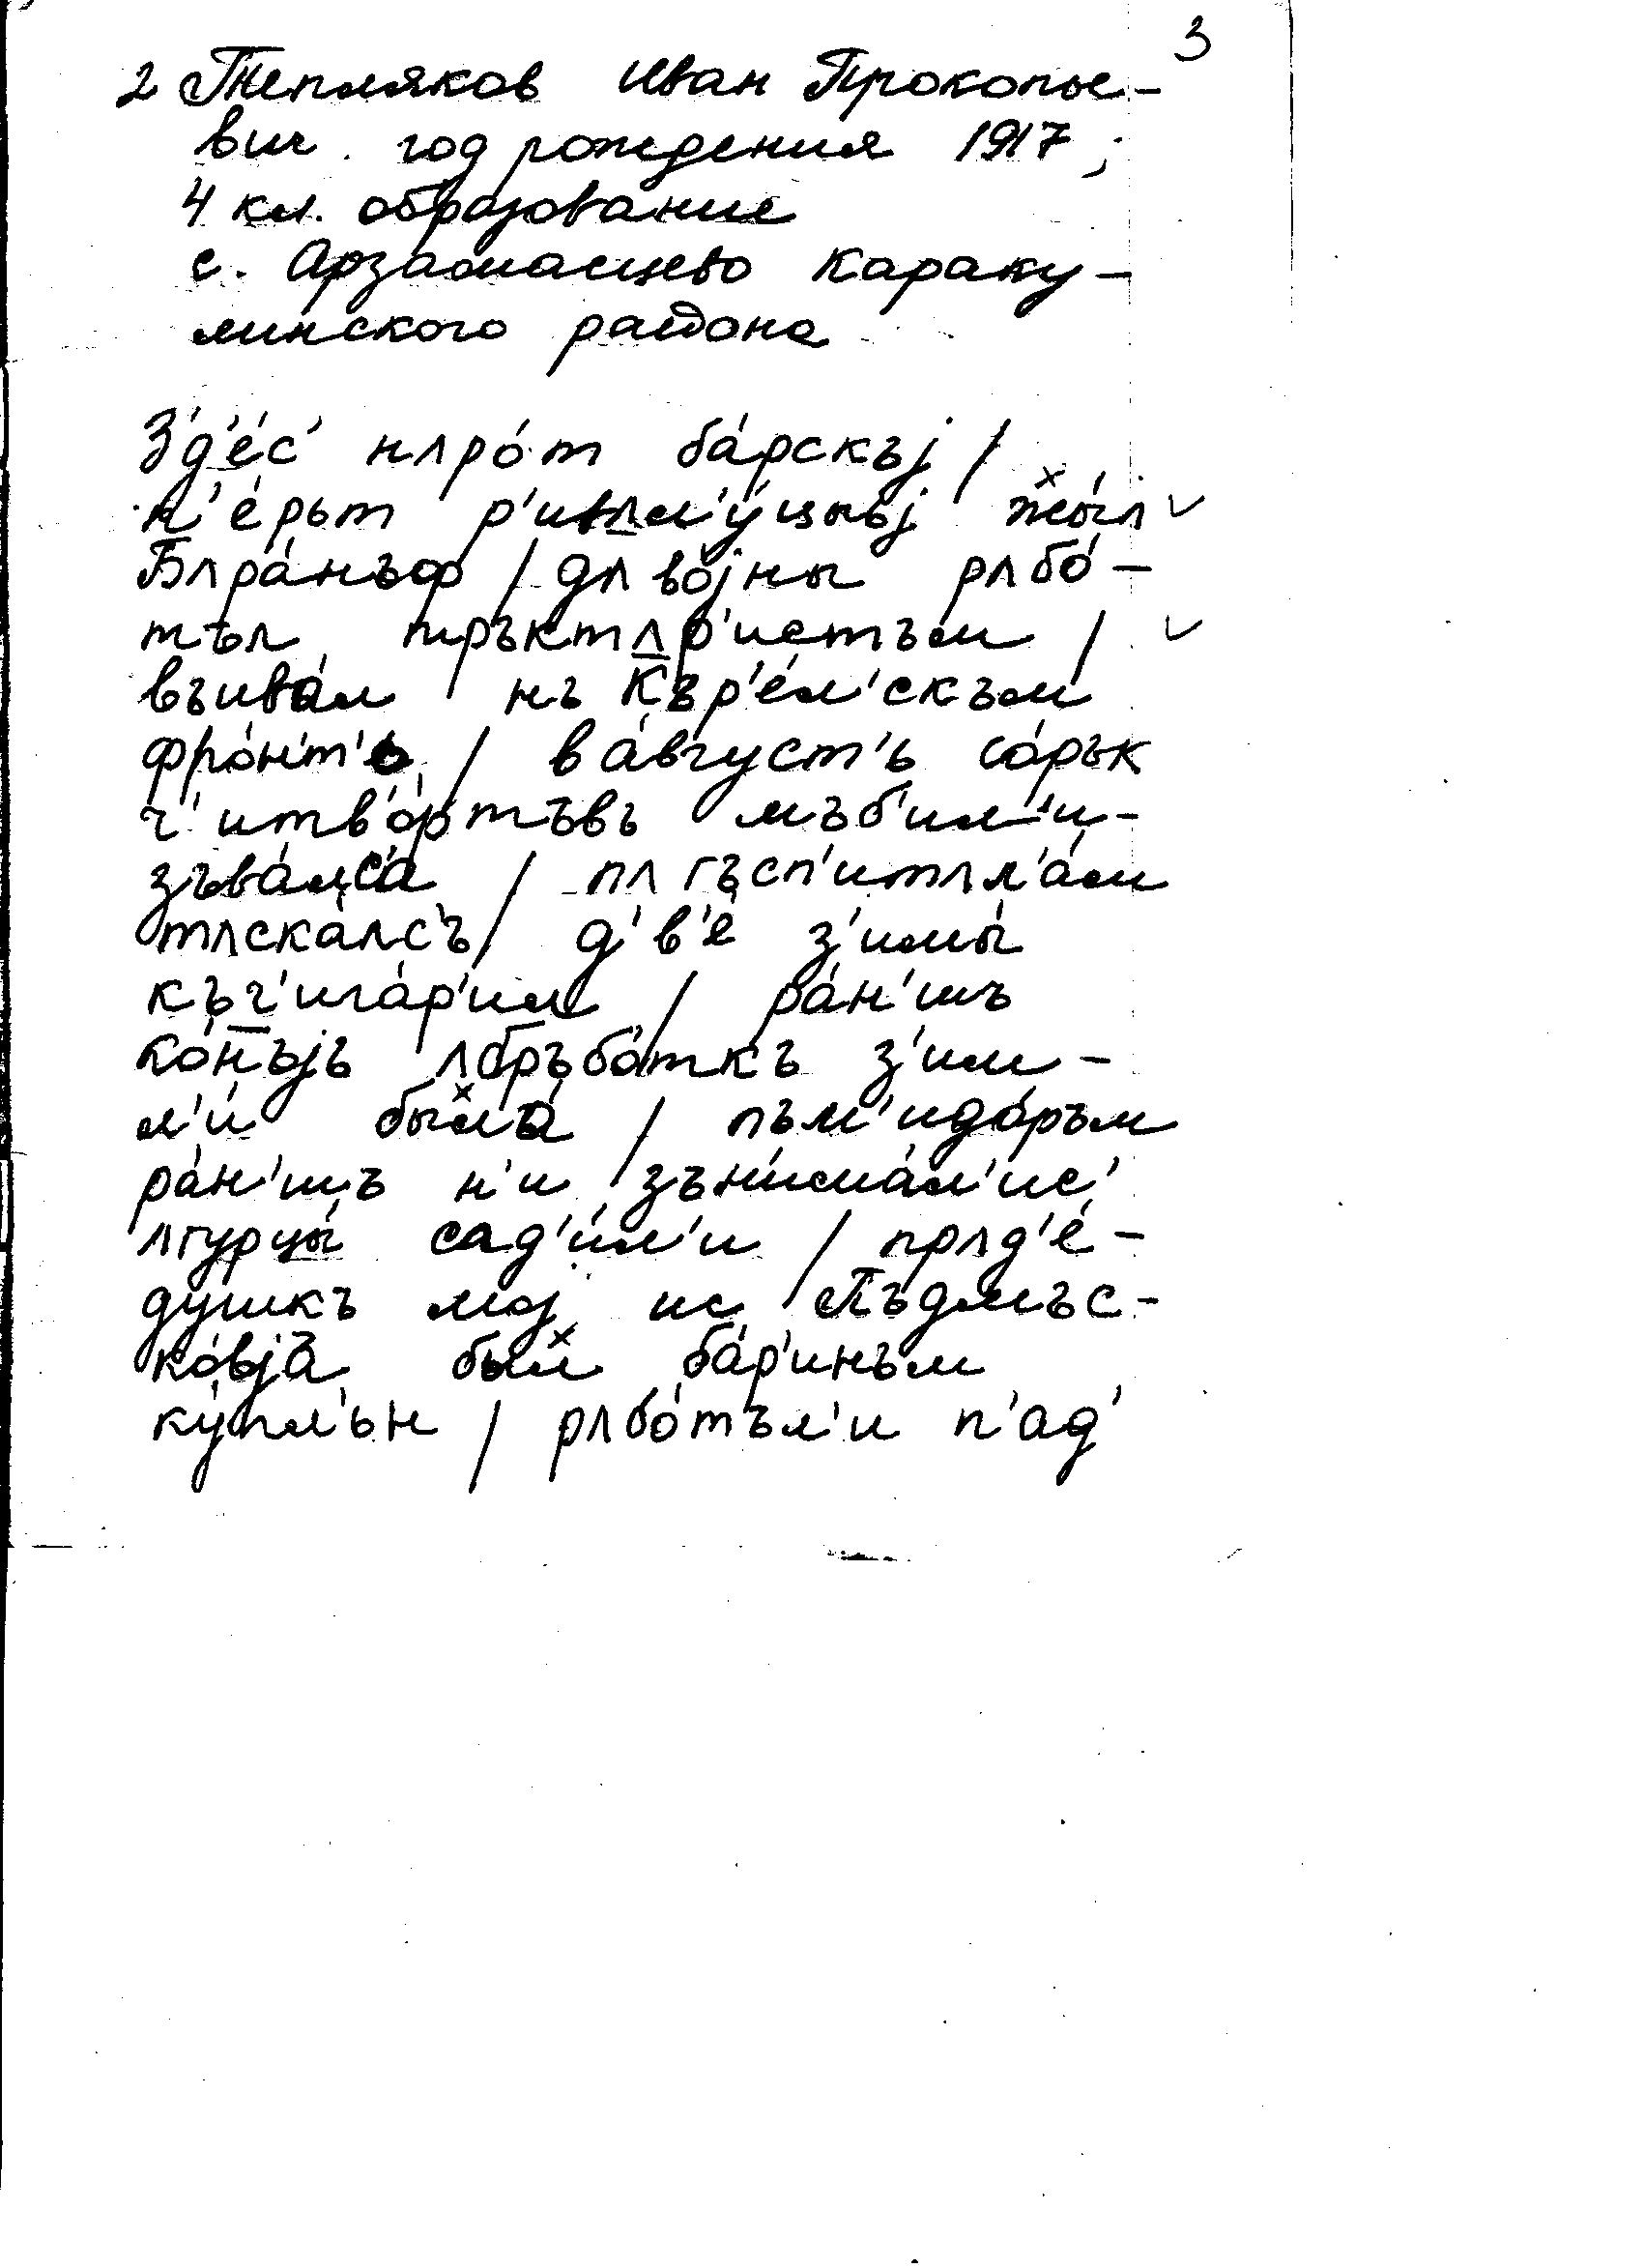 3
2 Тепляков Иван Прокопье-
вич. год рождения 1917;
4 кл. образование
с. Арзамасцево Караку-
линского района
З'д'е́с' нʌро́т ба́рскъј /
п'е́рът р'ивʌл'у́цыьј жы́л
Бʌра́нъф / дʌ во́јны рʌбо́-
тъл тръктʌр'истъм /
въива́л нъ Кър'е́л'скъм
фро́н'т'ь / в а́вгуст'ь со́рък
ч'итв'о́ртъвъ мъб'ил'и-
зъва́лса / пʌ гъсп'итʌл'а́м
тʌска́лсъ / д'в'е́ з'имы́
къч'ига́р'ил / ра́н'шъ
ко́нъјъ ʌбръбо́ткъ з'им-
л'и́ была́ / пъм'идо́ръм
ра́н'шъ н'и зън'има́л'ис'
ʌгурцы́ сад'и́л'и / прʌд'е́-
душкъ мој ис Пъдмъс-
ко́вјъ был ба́р'инъм
ку́пл'ьн / рʌбо́тъл'и п'ад'